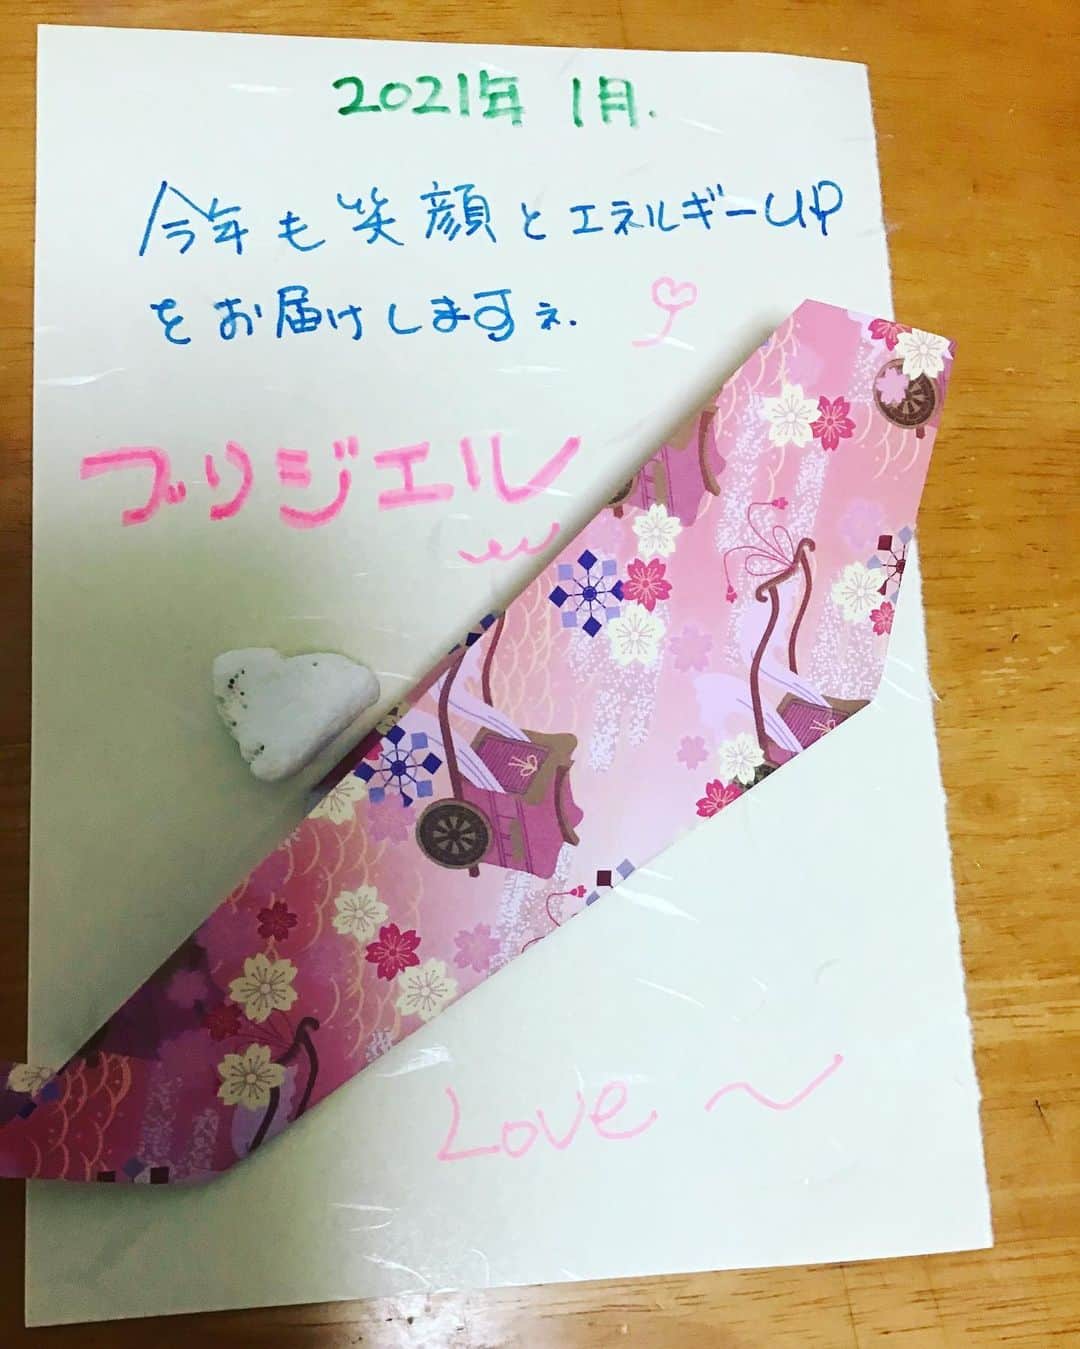 2021年 1月.
今年も笑顔とエネルギーUP
をお届けしますネ.
ブリジエル
Love 〜